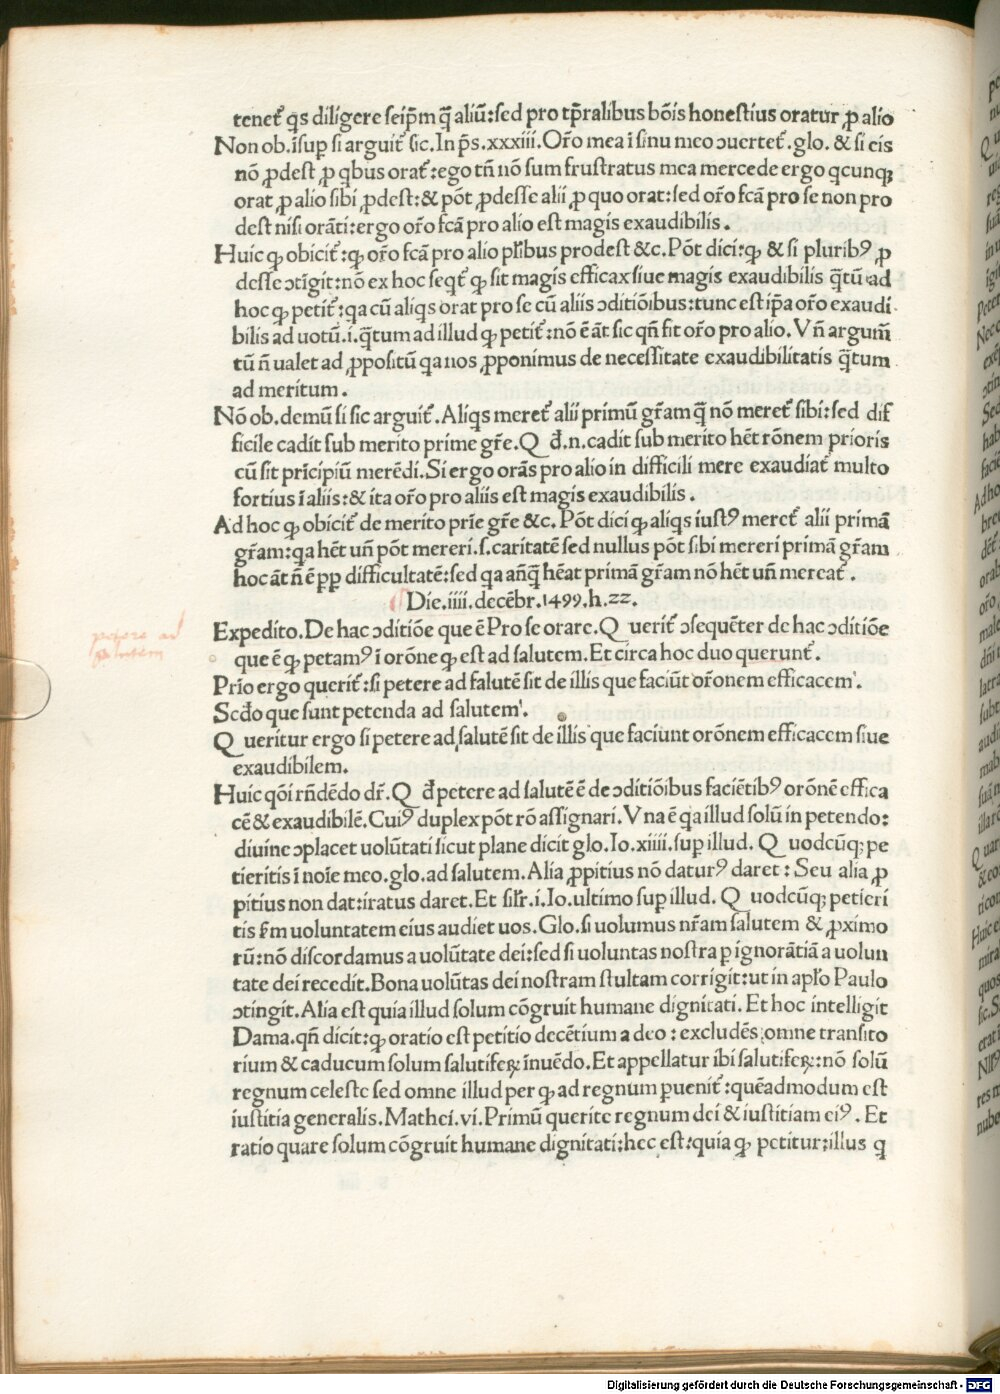 tenet᷑ q̇s diligere seip̄m q̄̇ aliū:sed pro tp̄ralibus bōis honestius oratur ꝓ alio
Non ob.īsuꝑ si arguit᷑ sic.In p̄s.xxxiii.Or̄o mea ī sinu meo ↄuertet᷑.glo. & si eis
nō ꝓdest ꝓ qbus orat᷑:ego tn̄ nō sum frustratus mea mercede ergo qcunqꝫ
orat ꝓ alio sibi ꝓdest:& pōt ꝓdesse alii ꝓ quo orat:sed or̄o fcā pro se non pro
dest nisi orāti:ergo or̄o fcā pro alio est magis exaudibilis.
Huic ꝙ obicit᷑:ꝙ or̄o fcā pro alio pl̄ribus prodest &c.Pōt dici:ꝙ & si pluribꝰ ꝓ
desse ↄtīgit:nō ex hoc seqt᷑ ꝙ sit magis efficax siue magis exaudibilis q̄tū ad
hoc ꝙ petit᷑:qa cū aliqs orat pro se cū aliis ↄditiōibus:tunc est ip̄a or̄o exaudi
bilis ad uotū.i.q̄tum ad illud ꝙ petit᷑:nō ē āt sic qn̄ fit or̄o pro alio.Vn̄ argum̄
tū n̄ ualet ad ꝓpositū qa nos ꝓponimus de necessitate exaudibilitatis q̄tum
ad meritum.
Nō ob.demū si sic arguit᷑.Aliqs meret᷑ alii primū gr̄am q̄ nō meret᷑ sibi:sed dif
ficile cadit sub merito prime gr̄e.Q đ.n.cadit sub merito hēt rōnem prioris
cū sit prīcipiū merēdi.Si ergo orās pro alio in difficili mere exaudiat᷑ multo
fortius ī aliis:& ita or̄o pro aliis est magis exaudibilis.
Ad hoc ꝙ obicit᷑ de merito prīe gr̄e &c.Pōt dici ꝙ aliqs iustꝰ meret᷑ alii primā
gr̄am:qa hēt un̄ pōt mereri.s.caritatē sed nullus pōt sibi mereri primā gr̄am
hoc āt n̄ ē ꝑp difficultatē:sed qa an̄q̄ hēat primā gr̄am nō hēt un̄ mereat᷑.
Die.iiii.decēbr.1499.h.22.
Expedito.De hac ↄditiōe que ē Pro se orare.Q uerit᷑ ↄsequēter de hac ↄditiōe
que ē ꝙ petamꝰ ī orōne ꝙ est ad salutem.Et circa hoc duo querunt᷑.
Prīo ergo querit᷑:si petere ad salutē sit de illis que faciūt or̄onem efficacem.
Scđo que sunt petenda ad salutem.
Q ueritur ergo si petere ad salutē sit de illis que faciunt orōnem efficacem siue
exaudibilem.
Huic qōi rn̄dēdo dr̄.Q đ petere ad salutē ē de ↄditiōibus faciētibꝰ orōnē effica
cē & exaudibilē.Cuiꝰ duplex pōt rō assignari.Vna ē qa illud solū in petendo:
diuine ↄplacet uolūtati sicut plane dicit glo.Io.xiiii.suꝑ illud. Q uodcūqꝫ pe
tieritis ī noīe meo.glo.ad salutem.Alia ꝓpitius nō daturꝰ daret: Seu alia ꝓ
pitius non dat:iratus daret.Et sil̄r.i.Io.ultimo suꝑ illud. Q uodcūqꝫ petieri
tis s̄m uoluntatem eius audiet uos.Glo.si uolumus nr̄am salutem & ꝓximo
rū:nō discordamus a uolūtate dei:sed si uoluntas nostra ꝑ ignorātiā a uolun
tate dei recedit.Bona uolūtas dei nostram stultam corrigit:ut in apl̄o Paulo
ↄtingit.Alia est quia illud solum cōgruit humane dignitati.Et hoc intelligit
Dama.qn̄ dicit:ꝙ oratio est petitio decētium a deo: excludēs omne transito
rium & caducum solum salutifeꝝ īnuēdo.Et appellatur ibi salutifeꝝ:nō solū
regnum celeste sed omne illud per ꝙ ad regnum ꝑuenit᷑:quēadmodum est
iustitia generalis.Mathei.vi.Primū querite regnum dei & iustitiam eiꝰ. Et
ratio quare solum cōgruit humane dignitati:hec est:quia ꝙ petitur:illus q
petere ad
salutem
Digitalisierung gefördert durch die Deutsche Forschungsgemeinschaft - DFG